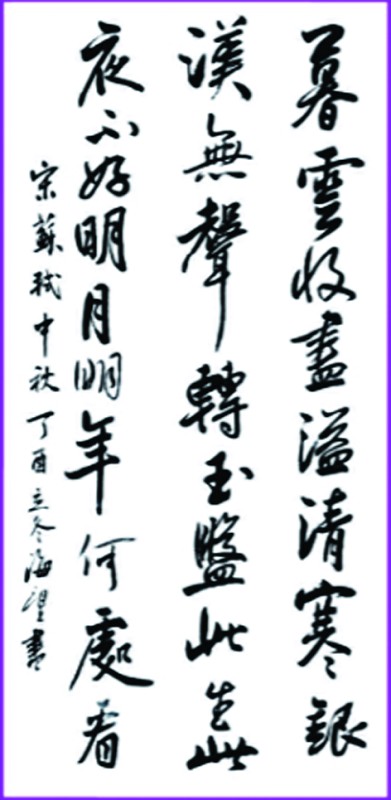 暮雲收盡溢清寒銀
漢無聲轉玉盤此生此
夜不好明月明年何處看
宋蘇軾中秋丁酉立冬海望書